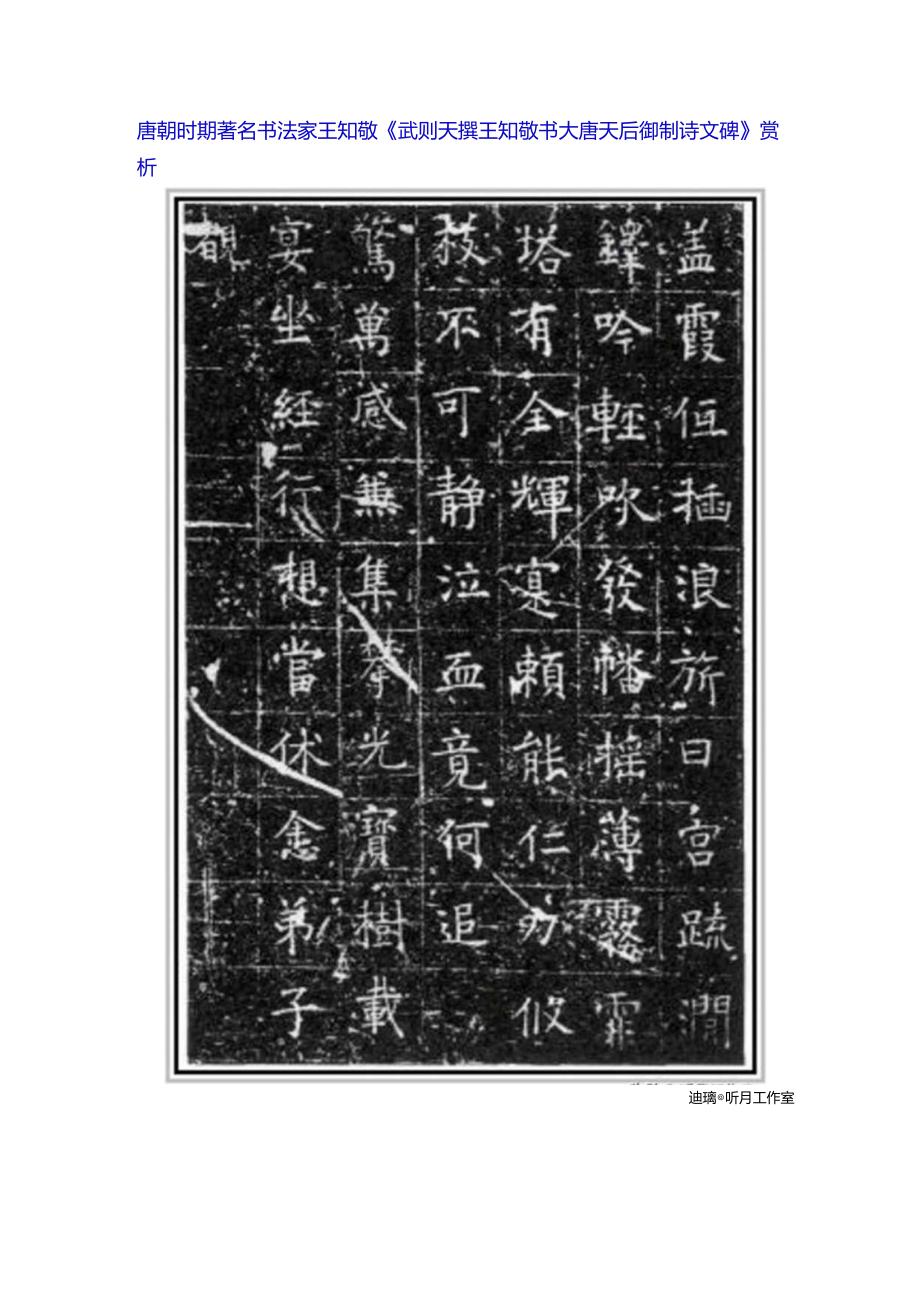 唐朝时期著名书法家王知敬《武则天撰王知敬书大唐天后御制诗文碑》赏
析
盖霞低插浪旂日宮疏澗
鐸吟輕吹發幡摇薄霧霏
塔有全輝寔頼能仁力攸
枝不可静泣血竟何追
驚萬感兼集攀光寶樹載
宴坐經行想當休悆弟子
覩
迪璃®听月工作室